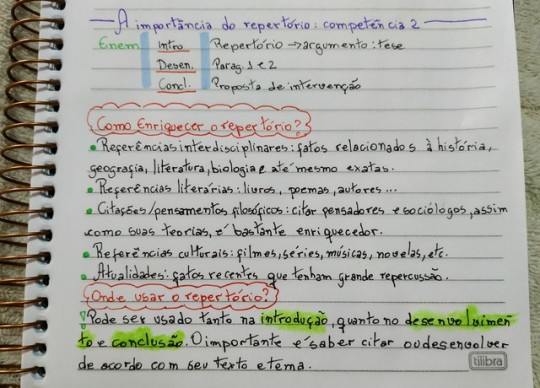 A importância do repertório: competência 2
Enem Intro Repertório → argumento: tese
Desen. Parag. 1 e 2
Concl. Proposta de intervenção
Como Enriquecer o repertório?
• Referências interdisciplinares: fatos relacionados à história,
geografia, literatura, biologia e até mesmo exatas.
• Referências literárias: livros, poemas, autores...
• Citações/pensamentos filosóficos: citar pensadores e sociólogos, assim
como suas teorias, é bastante enriquecedor.
• Referências culturais: filmes, séries, músicas, novelas, etc.
• Atualidades: fatos recentes que tenham grande repercussão.
Onde usar o repertório?
! Pode ser usado tanto na introdução, quanto no desenvolvimen-
to e conclusão. O importante é saber citar ou desenvolver
de acordo com seu texto e tema.
tilibra